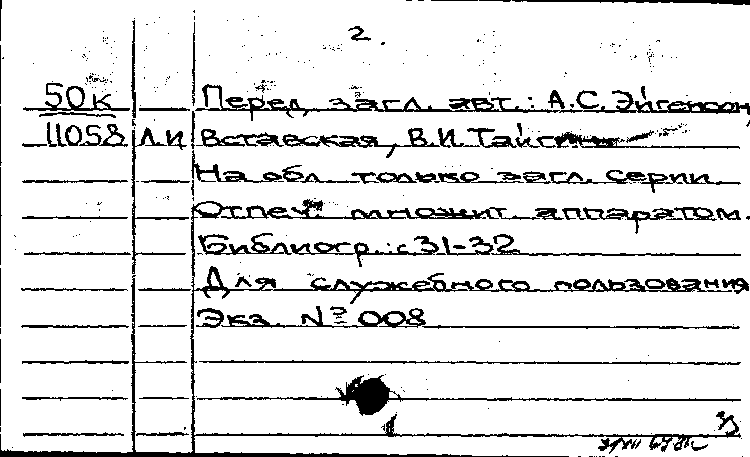 2.
50к Перед загл. авт.: А.С. Эйгенсон,
11058 Л.И. Вставская, В.И. Тайгин
На обл. только загл. серии.
Отпеч. множит. аппаратом.
Библиогр.: с 31-32
Для служебного пользования
Экз. № 008